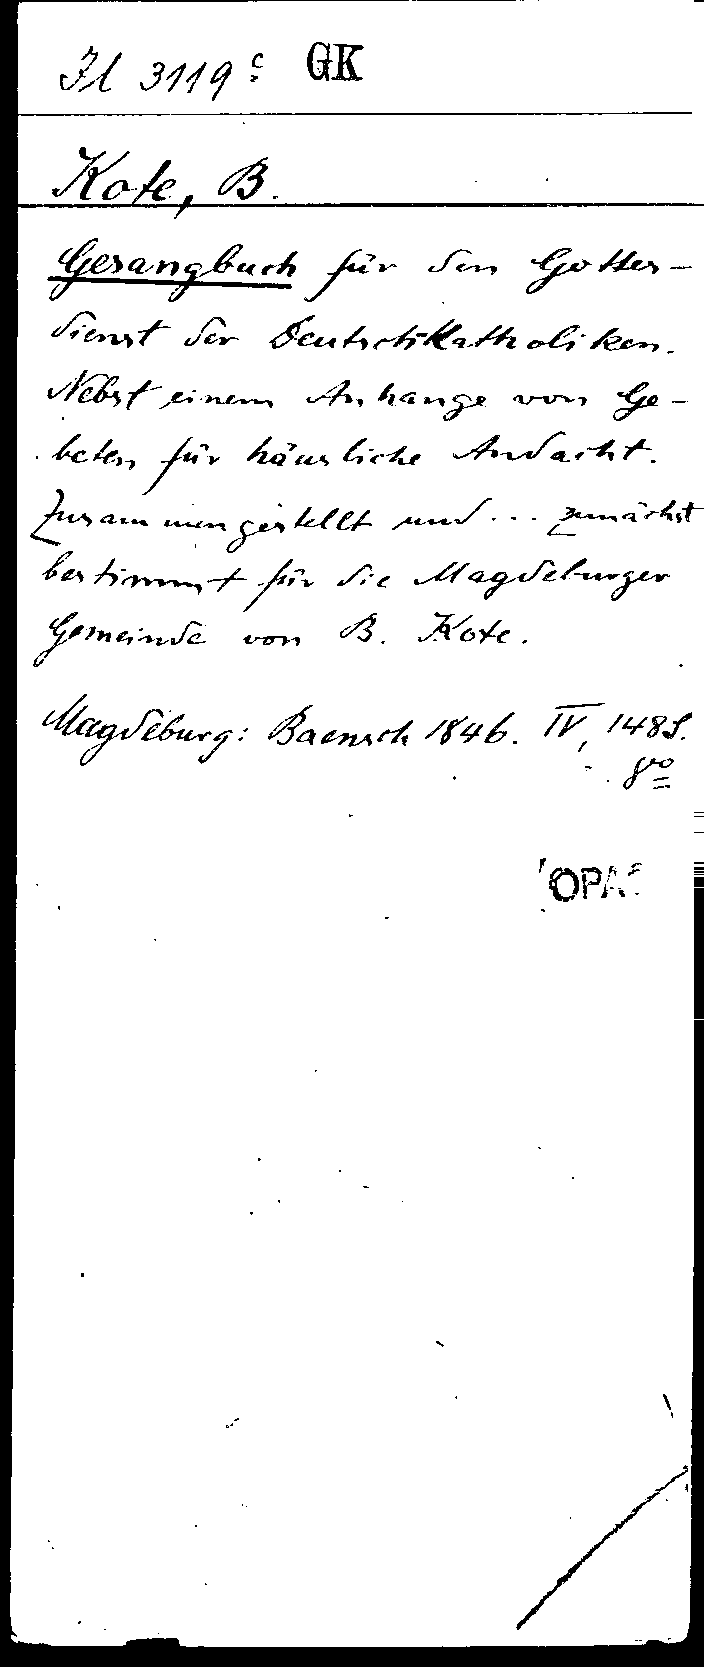 Il 3119 c GK
Kote, B.
Gesangbuch für den Gottes-
dienst der Deutschkatholiken.
Nebst einem Anhange von Ge-
beten für häusliche Andacht.
Zusammengestellt und ... zunächst
bestimmt für die Magdeburger
Gemeinde von B. Kote.
Magdeburg: Baensch 1846. IV, 148 S.
8vo
OPA